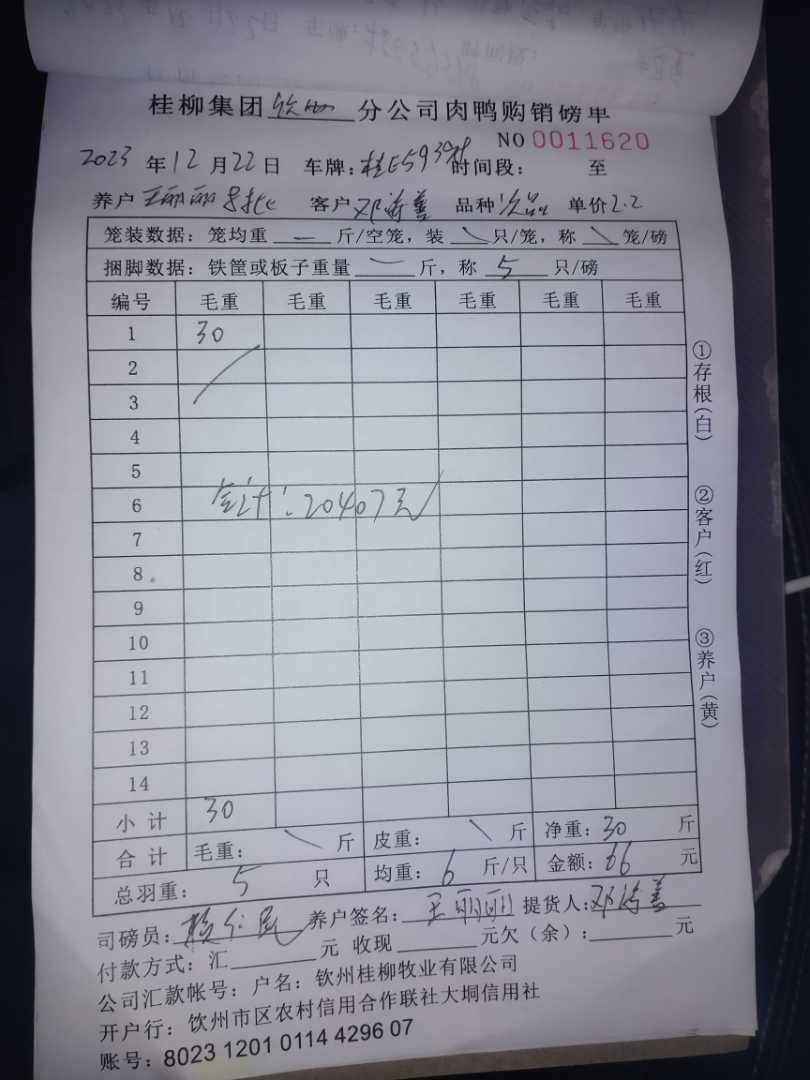 桂柳集团 钦州 分公司肉鸭购销磅单
NO 0011620
2023 年 12 月 22 日 车牌: 桂E593 时间段: 至
养户 王丽丽 客户 邓 善 品种 次品 单价 2.2
笼装数据: 笼均重 — 斤/空笼, 装 \ 只/笼, 称 \ 笼/磅
捆脚数据: 铁筐或板子重量 — 斤, 称 5 只/磅
编号 毛重 毛重 毛重 毛重 毛重 毛重
1 30
2
3
4
5
6 合计: 20407元
7
8
9
10
11
12
13
14
小计 30
合计 毛重: \ 斤 皮重: \ 斤 净重: 30 斤
总羽重: 5 只 均重: 6 斤/只 金额: 66 元
司磅员: 养户签名: 王丽丽 提货人: 邓 善
付款方式: 汇 元 收现 元欠(余): 元
公司汇款帐号: 户名: 钦州桂柳牧业有限公司
开户行: 钦州市区农村信用合作联社大垌信用社
账号: 8023 1201 0114 4296 07
①存根(白)
②客户(红)
③养户(黄)